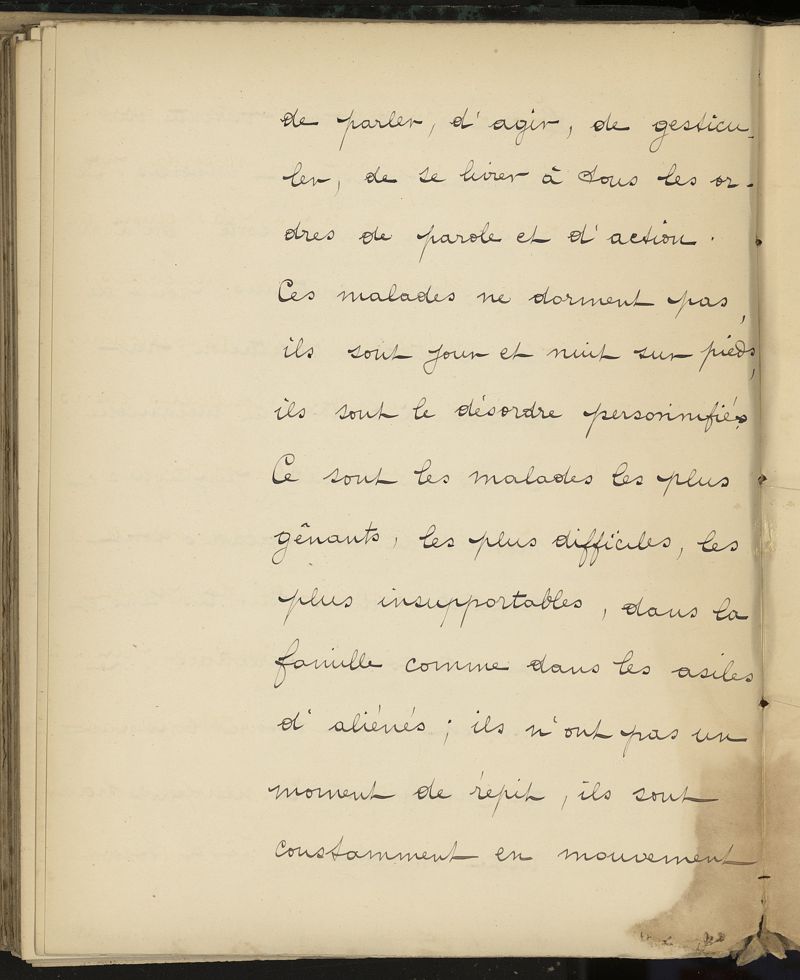 de parler, d'agir, de gesticu-
ler, de se livrer à tous les or-
dres de parole et d'action.
Ces malades ne dorment pas,
ils sont jour et nuit sur pieds,
ils sont le désordre personnifié.
Ce sont les malades les plus
gênants, les plus difficiles, les
plus insupportables, dans la
famille comme dans les asiles
d'aliénés ; ils n'ont pas un
moment de répit, ils sont
constamment en mouvement